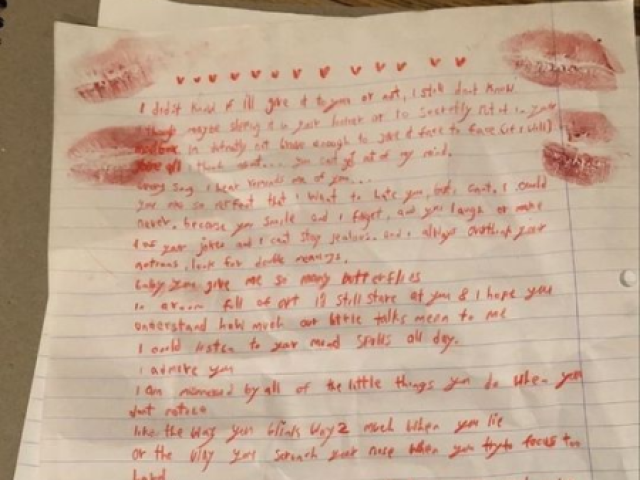 I didnt know if ill give it to you or not, I still dont know.
I though maybe in your locker or to secretly put it in your
in not brave enough to give it face to face (if I will)
I think about... you cant get out of my mind.
every song I hear reminds me of you...
you are so perfect that I want to hate you, but, cant. I could
never. because you smile and I forget, and you laugh or make
1 of your jokes and I cant stay jealous. and I always overthink your
motions, look for double meanings.
baby you give me so many butterflies
in a room full of art ill still stare at you & I hope you
understand how much our little talks mean to me
I could listen to your mood spoils all day.
i admire you
I am by all of the little things you do when you
dont notice
like the way you blink way 2 much when you lie
or the way you scrunch your nose when you try to focus too
hard